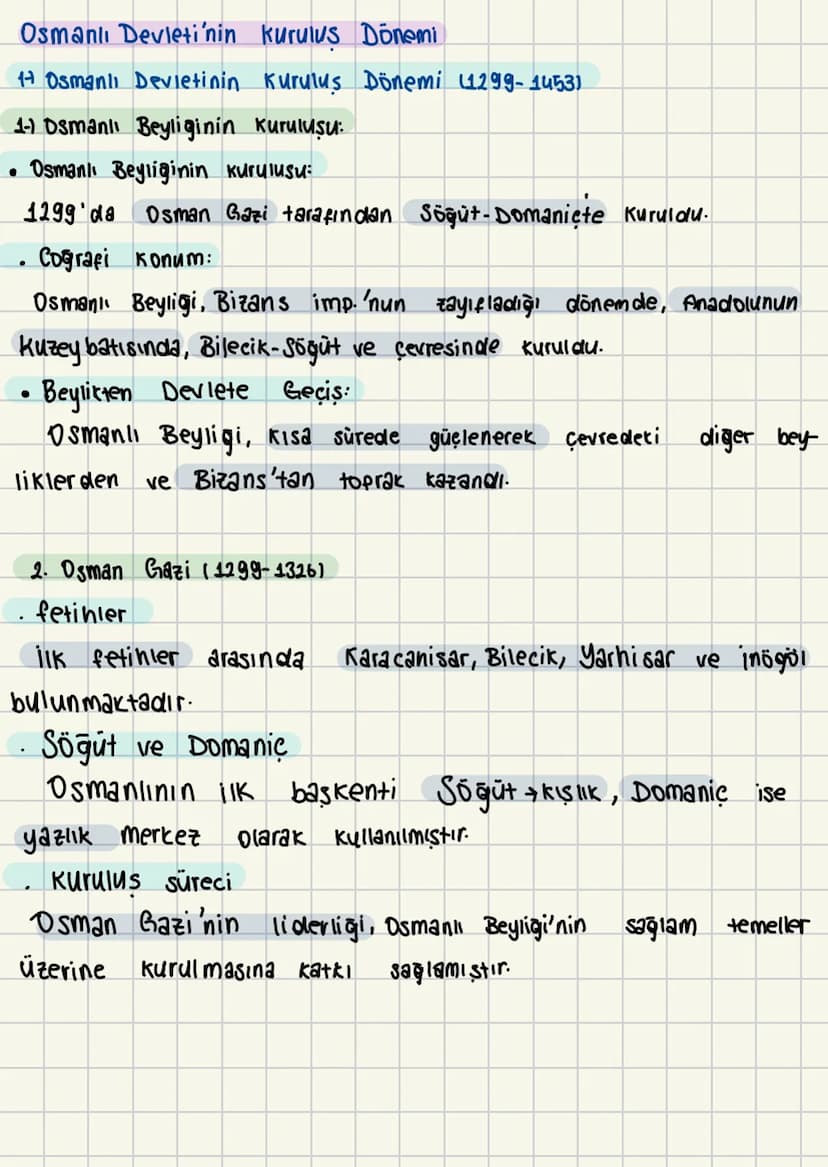 Osmanlı Devleti'nin kuruluş Dönemi
1-) Osmanlı Devletinin Kuruluş Dönemi (1299-1453)
1-) Osmanlı Beyliginin Kuruluşu:
• Osmanlı Beyliginin kuruluşu:
1299'da Osman Gazi tarafından Söğüt-Domaniçte Kuruldu.
• Coğrafi Konum:
Osmanlı Beyliği, Bizans imp.'nun zayıfladığı dönemde, Anadolunun
Kuzeybatısında, Bilecik-Söğüt ve çevresinde kuruldu.
• Beylikten Devlete Geçiş:
Osmanlı Beyliği, kısa sürede güçlenerek çevredeki diğer bey-
liklerden ve Bizans'tan toprak kazandı.
2. Osman Gazi (1299-1326)
• fetihler
İlk fetihler arasında Karacahisar, Bilecik, Yarhisar ve inögöl
bulunmaktadır.
• Söğüt ve Domaniç
Osmanlının ilk başkenti Söğüt → kışlık, Domaniç ise
yazlık merkez olarak kullanılmıştır.
• Kuruluş süreci
Osman Gazi'nin liderliği, Osmanlı Beyliği'nin sağlam temeller
üzerine kurulmasına katkı sağlamıştır.